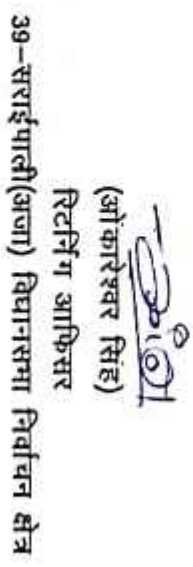 (ओंकारेश्वर सिंह)
रिटर्निंग आफिसर
39-सराईपाली(अजा) विधानसभा निर्वाचन क्षेत्र